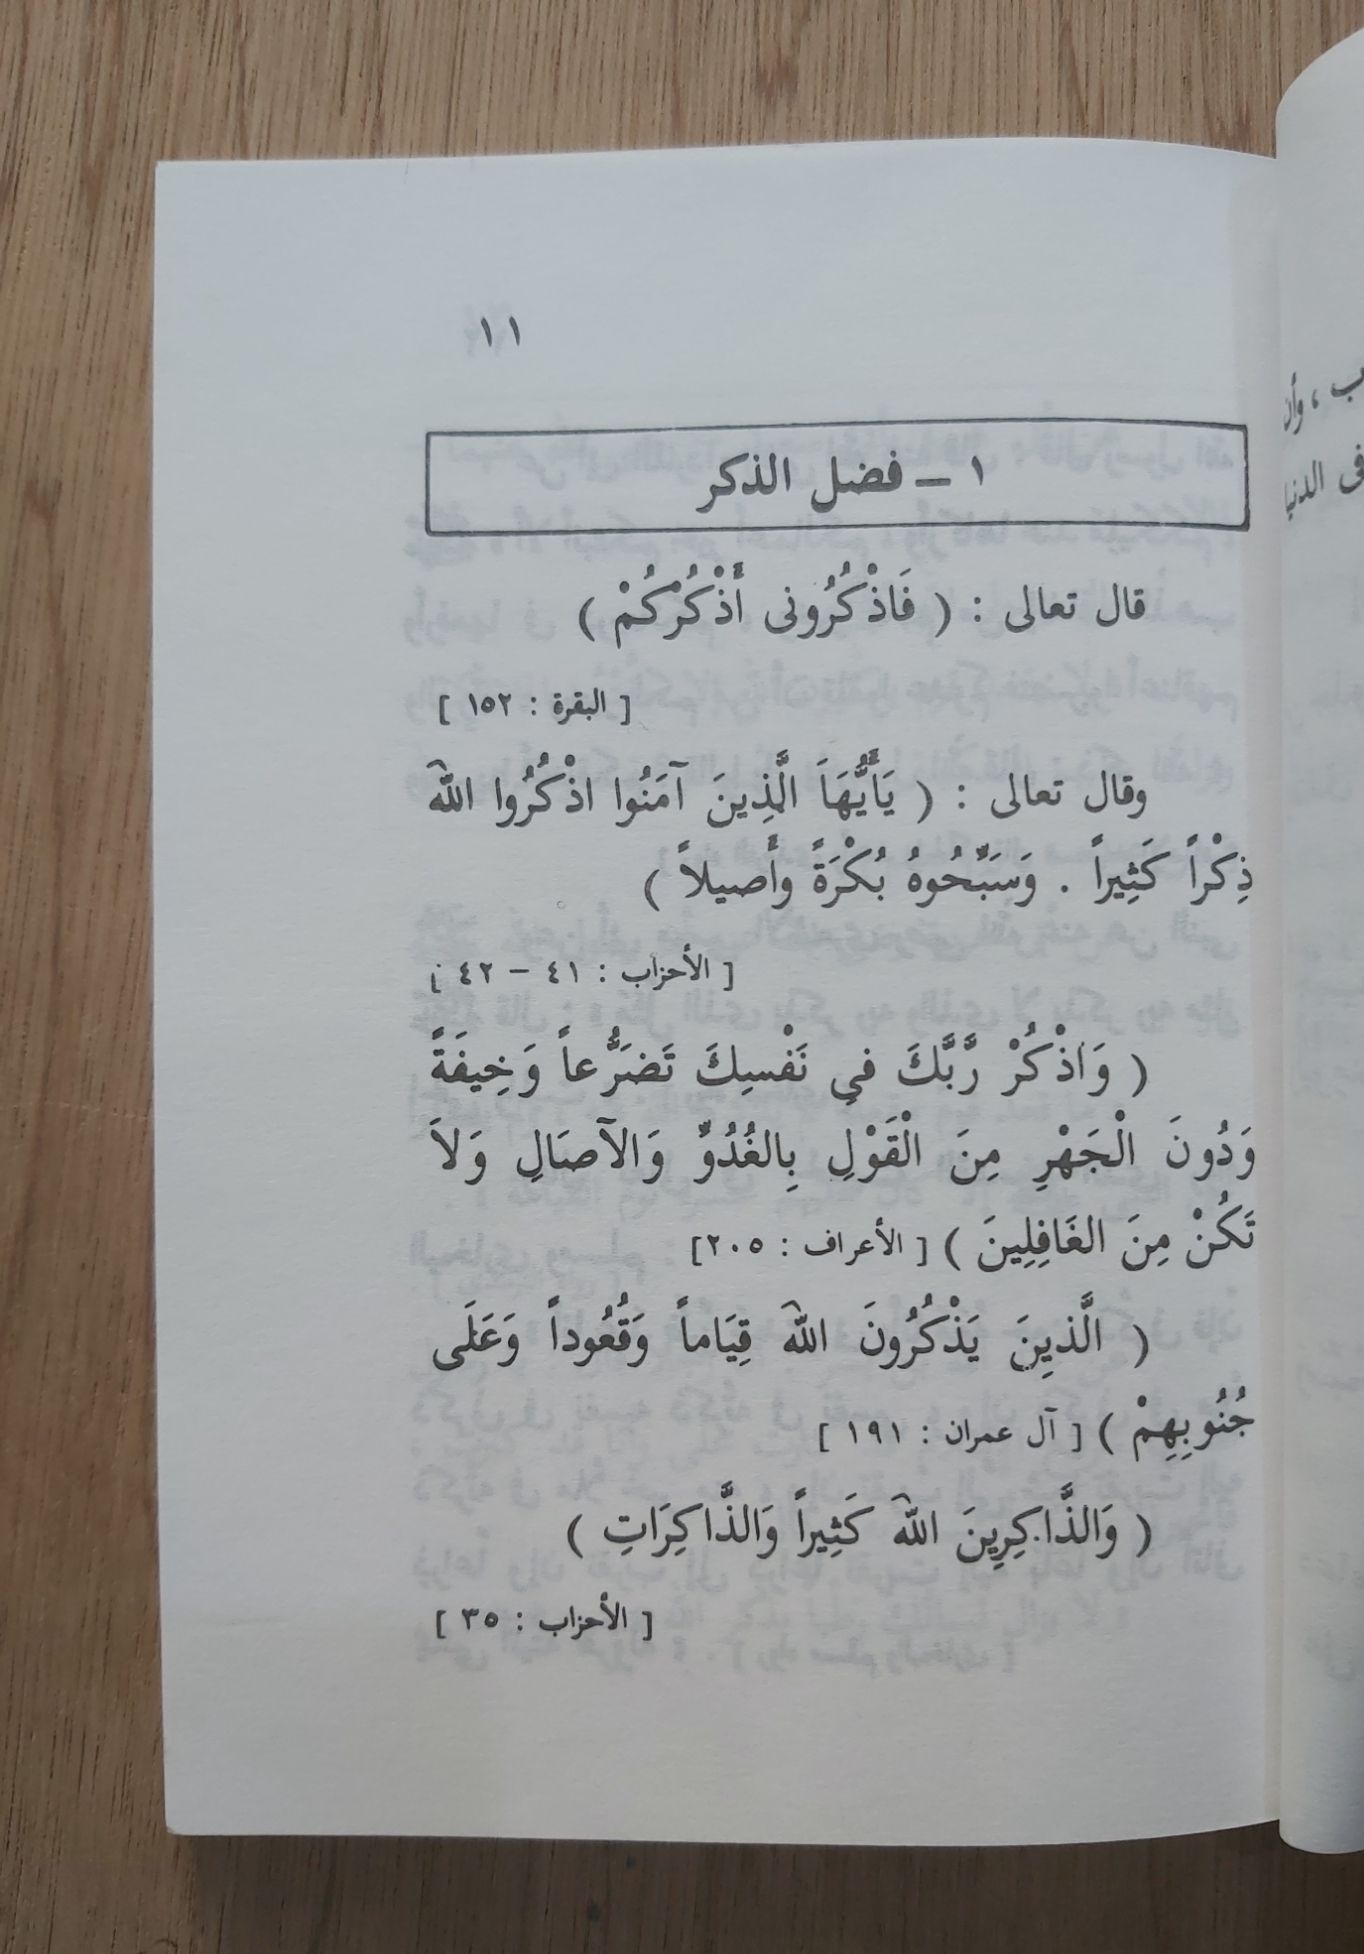 ١١
١ – فضل الذكر
قال تعالى : ( فَاذْكُرُونى أَذْكُرْكُمْ )
[ البقرة : ١٥٢ ]
وقال تعالى : ( يَأَيُّهَا الَّذِينَ آمَنُوا اذْكُرُوا اللهَ
ذِكْراً كَثِيراً . وَسَبِّحُوهُ بُكْرَةً وأَصيلاً )
[ الأحزاب : ٤١ – ٤٢ ]
( وَاذْكُرْ رَّبَّكَ في نَفْسِكَ تَضَرُّعاً وَخِيفَةً
وَدُونَ الْجَهْرِ مِنَ الْقَوْلِ بِالغُدُوِّ وَالآصَالِ وَلاَ
تَكُنْ مِنَ الغَافِلِينَ ) [ الأعراف : ٢٠٥]
( الَّذِينَ يَذْكُرُونَ اللهَ قِيَاماً وَقُعُوداً وَعَلَى
جُنُوبِهِمْ ) [ آل عمران : ١٩١ ]
( وَالذَّاكِرِينَ اللهَ كَثِيراً وَالذَّاكِرَاتِ )
[ الأحزاب : ٣٥ ]
، وأن
فى الدنيا